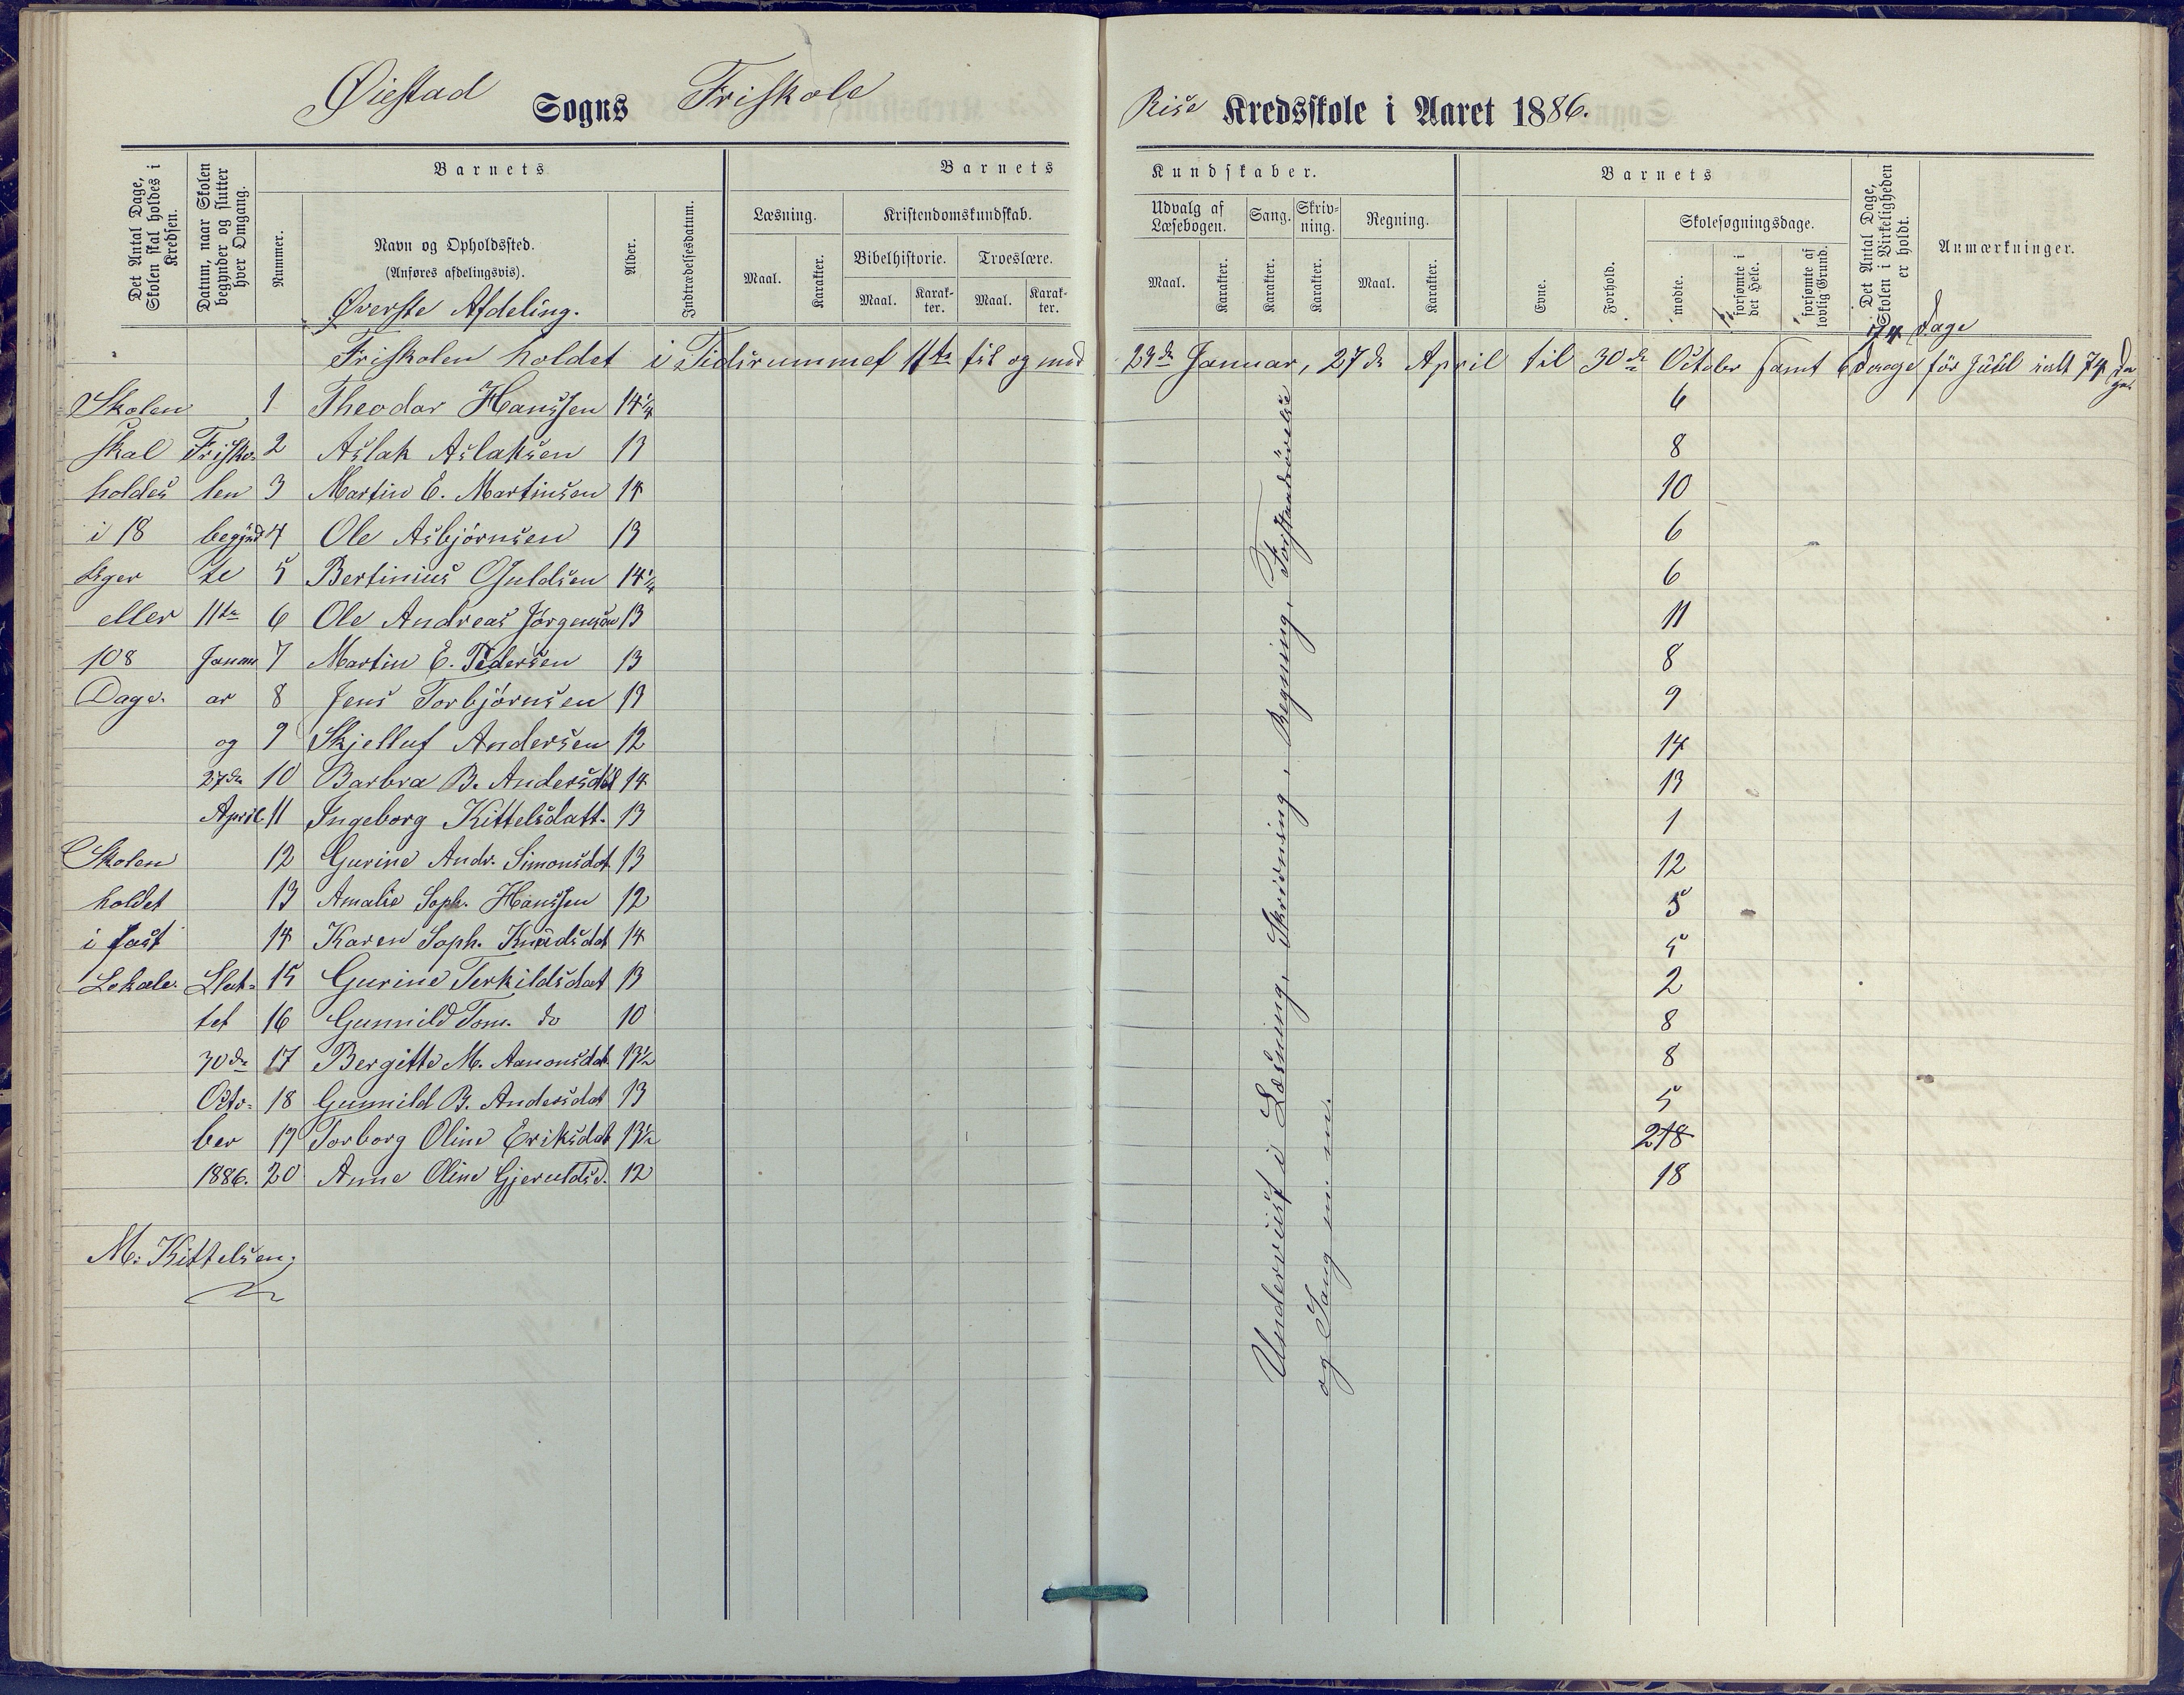 Øiestad Sogns Friskole Rise Kredsskole i Aaret 1886.
Det Antal Dage, Skolen skal holdes i Kredsen.
Datum, naar Skolen begynder og slutter hver Omgang.
Barnets
Nummer.
Navn og Opholdssted.
(Anføres afdelingsvis).
Øverste Afdeling.
Alder.
Indtrædelsesdatum.
Barnets Kundskaber.
Læsning.
Maal.
Karakter.
Kristendomskundskab.
Bibelhistorie.
Maal.
Karakter.
Troeslære.
Maal.
Karakter.
Udvalg af Læsebogen.
Maal.
Karakter.
Sang.
Karakter.
Skrivning.
Karakter.
Regning.
Maal.
Karakter.
Barnets
Evne.
Forhold.
Skolesøgningsdage.
mødte.
forsømte i det Hele.
forsømte af lovlig Grund.
Det Antal Dage, Skolen i Virkeligheden er holdt.
Anmærkninger.
74 Dage
Friskolen holdet i Tidsrummet 11te til og med 23de Januar, 27de April til 30de October samt 6 Dage før Juul ialt 74 Dage
Skolen 1 Theodor Hanssen 14 1/4 6
skal Frisko- 2 Aslak Aslaksen 13 8
holdes len 3 Martin E. Martinsen 14 10
i 18 begynd 4 Ole Asbjørnsen 13 6
Uger te 5 Bertinius Guldsen 14 1/4 6
eller 11te 6 Ole Andreas Jørgensen 13 11
108 Janu 7 Martin E. Pedersen 13 8
Dage. ar 8 Jens Torbjørnsen 13 9
og 9 Skjelluf Andersen 12 14
27de 10 Barbra B. Andersdat 14 13
April 11 Ingeborg Kittelsdatt. 13 1
Skolen 12 Gurine Andr. Simonsdat. 13 12
holdet 13 Amalie Soph. Hanssen 12 5
i fast 14 Karen Soph. Knudsdat 14 5
Lokale. Slut- 15 Gurine Terkildsdat 13 2
tet 16 Gunnild Tom. do 10 8
30de 17 Bergitte M. Aanonsdat. 13 1/2 8
Octo- 18 Gunnild B. Andersdat 13 5
ber 19 Torborg Oline Eriksdat 13 1/2 218
1886. 20 Anne Oline Gjeruldsd. 12 18
M. Kittelsen
Underviist i Læsning, Skrivning, Regning, Forstandsøvelse
og Sang m. m.